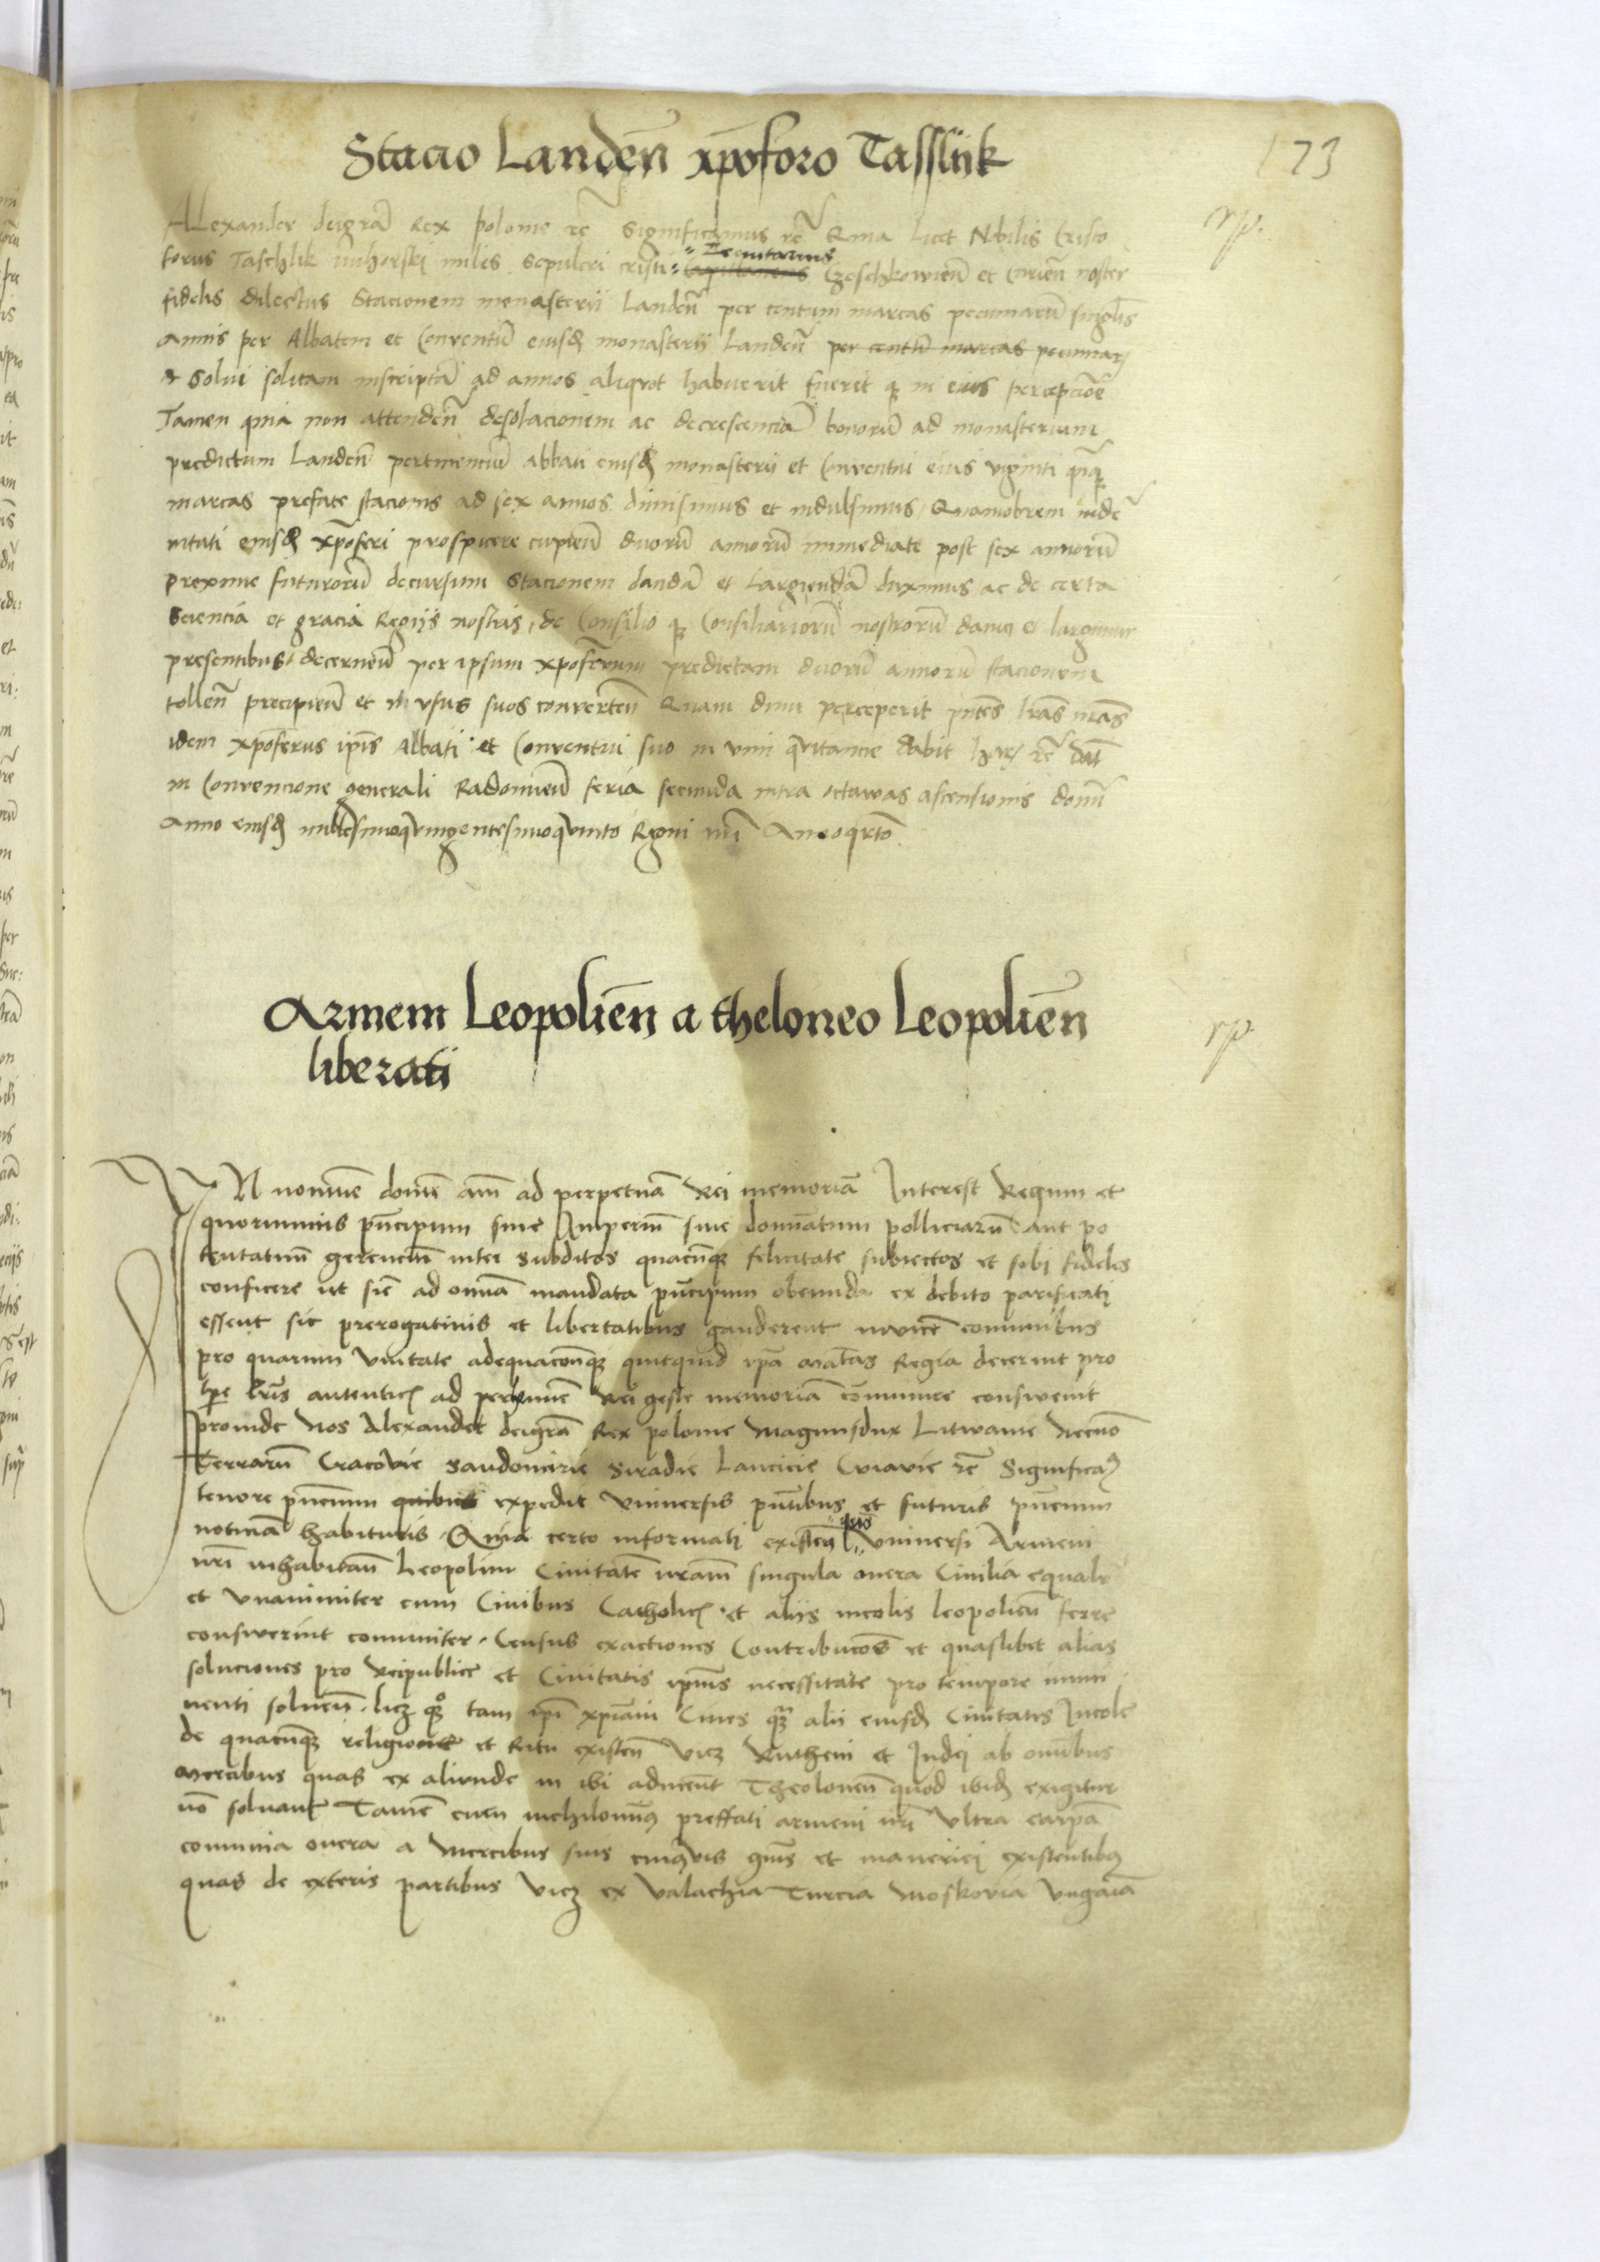 173
Stacio Landeñ xpoforo Tassliik
rp.
Alexander deigrã Rex polonie rē Significamus rē Quia licet Nobilis Cristo
forus Taschlik miles Sepulcri cristi Tenutarius capitaneus et noster
fidelis dilectus Stacionem monasterii Landeñ per centum marcas pecuniarũ singlis
annis per Abbatem et Conventũ eiusd monasterii Landeñ per centũ marcas pecuniar
Solui solitam inscriptã ad annos aliquot habuerit fuerit q in eius percepcione
Tamen quia non attendeñ desolacionem ac decrescenciã bonorũ ad monasterium
predictum Landeñ pertinenciũ abbati eiusd monasterii et Conventui eius viginti quinq
marcas prefate stacionis ad sex annos dimisimus et indulsimus Quamobrem inde
nitati eiusd xpoferi prospicere cupieñ duorũ annorũ immediate post sex annorũ
proxime futurorũ decursum Stacionem dandã et Largiendã duximus ac de certa
Sciencia et gracia Regiis nostris, de Consilio q Consiliariorũ nostrorũ damus et largimur
presentibus decerneñ per ipsum xpoferum predictam duorũ annorũ stacionem
tolleñ precipieñ et in vsus suos converteñ Quam dum perceperit pntes lras nras
idem xpoferus ipis Abbati et Conventui suo in vim quitancie dabit har rē dat
in Convencione generali Radomieñ feria secunda infra octavas ascensionis domi
Anno eiusd millesimoqvingentesimoqvinto Regni nri Anno qrto.
Armeni Leopolieñ a theloneo Leopolieñ
liberati
rp
IN nomine domi amē ad perpetuã Rei memoriã Interest Regum et
quorumuis principum siue Imperiũ siue domiatum polliciarũ aut po
tentatuũ gerenciũ inter subditos quacũq felicitate subiectos et sibi fideles
conficere ut sic ad omia mandata principum obeunda ex debito parificati
essent sic prerogatiuis et libertatibus gauderent inuicē comunibus
pro quarum vnitate adequacionq quitquid ipa matas Regia decerint pro
tpe lris autentic ad perhennē Rei geste memoriã comunire consweuit
Proinde Nos Alexander deigrã Rex polonie Magnusdux Litwanie Necnō
Terrarũ Cracovie Sandomirie Siradie Lancicie Cviavie rē Significam
tenore pnciũ quibus expedit Vniuersis pntibus et futuris pncium
noticiã habituris Quia certo informati existeñ quo Vniuersi Armeni
nri inhabitañ Leopolim Ciuitatē nram singula onera Ciuilia equalr
et vnanimiter cum Ciuibus Catholic et aliis incolis leopolieñ ferre
consweuerint comuniter Census exactiones Contribuciões et quaslibet alias
soluciones pro Reipublice et Ciuitatis ipius necessitate pro tempore immi
nenti solueñ licz tam ipi xpiani Ciues q alii eiusd Ciuitatis Incole
de quacũq religione et Ritu existeñ vicz Rutheni et Judei ab omibus
mercibus quas ex aliunde in ibi aducunt Theoloneũ quod ibid exigitur
nō soluant Tamē nichilominus preffati armeni nri vltra
comunia onera a mercibus suis cuiusvis gnis et maneriei existentibus
quas de exteris partibus vicz ex Valachia Turcia Moskovia Vngaria